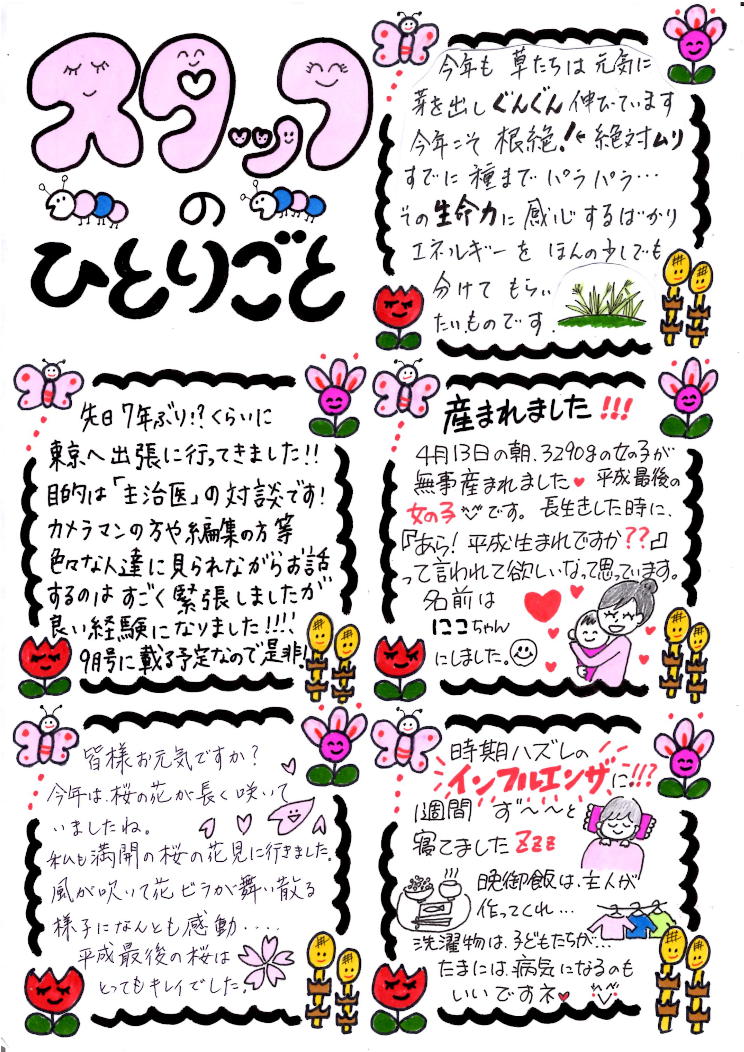 スタッフ
の
ひとりごと
今年も 草たちは 元気に
芽を出し ぐんぐん 伸びています
今年こそ 根絶!← 絶対ムリ
すでに 種まで パラパラ…
その 生命力に 感心するばかり
エネルギーを ほんの少しでも
分けて もらい
たいものです.
先日 7年ぶり!?くらいに
東京へ出張に行ってきました!!
目的は「主治医」の対談です!
カメラマンの方や編集の方等
色々な人達に見られながらお話
するのはすごく緊張しましたが
良い経験になりました!!!!
9月号に載る予定なので是非!
産まれました!!!
4月13日の朝、3290gの女の子が
無事産まれました♥ 平成最後の
女の子です。 長生きした時に、
『あら!平成生まれですか??』
って言われて欲しいなって思っています。
名前は
にこちゃん
にしました。
皆様お元気ですか?
今年は、桜の花が長く咲いて
いましたね。
私も満開の桜の花見に行きました。
風が吹いて花ビラが舞い散る
様子になんとも感動・・・・
平成最後の桜は
とってもキレイでした。
時期ハズレの
インフルエンザに!!?
1週間 ず〜〜と
寝てました Zzz
晩御飯は、主人が
作ってくれ…
洗濯物は、子どもたちが…
たまには、病気になるのも
いいですネ♥